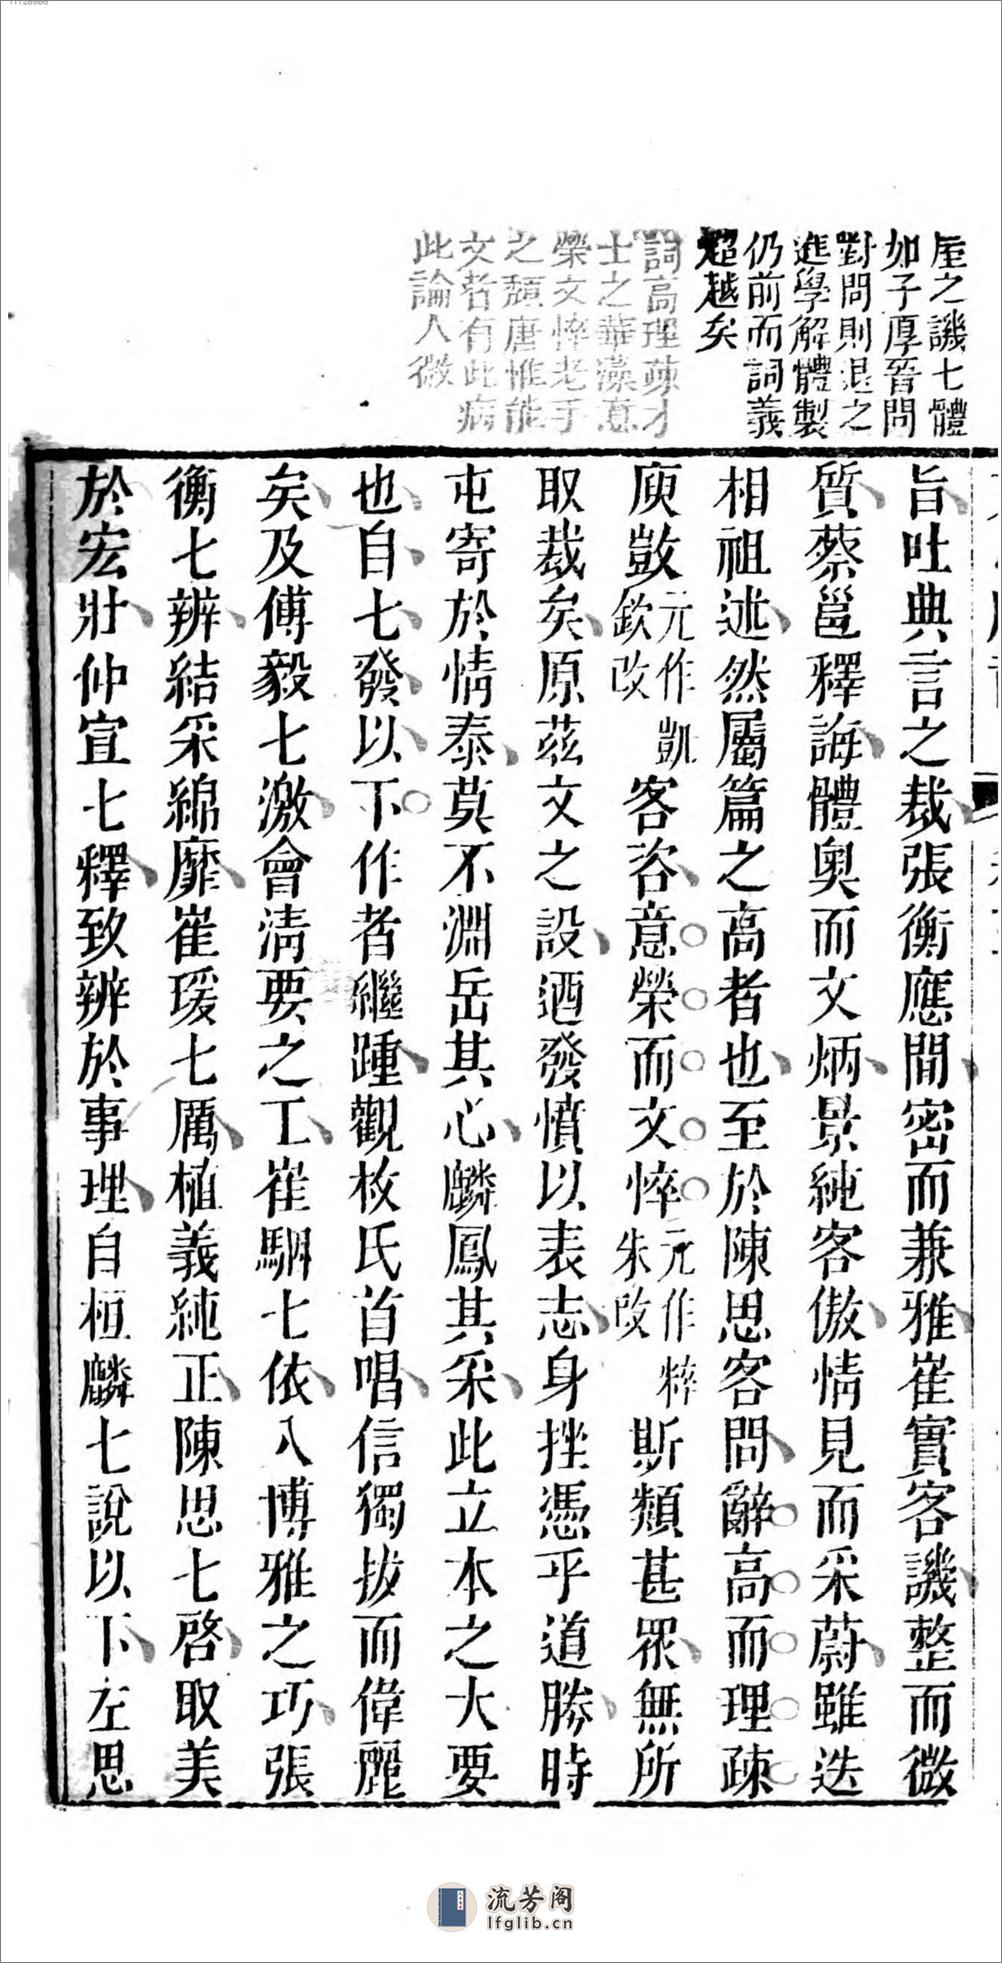 屋之譏七體
如子厚晉問
對問則退之
進學解體製
仍前而詞義
超越矣
詞高理疎才
士之華藻意
榮文悴老手
之頹唐惟能
文者有此病
此論人微
旨吐典言之裁張衡應間密而兼雅崔實客譏整而微
質蔡邕釋誨體奧而文炳景純客傲情見而采蔚雖迭
相祖述然屬篇之高者也至於陳思客問辭高而理疎
庾敳元作凱欽改客咨意榮而文悴元作粹朱改斯類甚眾無所
取裁矣原茲文之設迺發憤以表志身挫憑乎道勝時
屯寄於情泰莫不淵岳其心麟鳳其采此立本之大要
也自七發以下作者繼踵觀枚氏首唱信獨拔而偉麗
矣及傅毅七激會清要之工崔駰七依入博雅之巧張
衡七辨結采綿靡崔瑗七厲植義純正陳思七啓取美
於宏壯仲宣七釋致辨於事理自桓麟七說以下左思
流芳阁
lfglib.cn